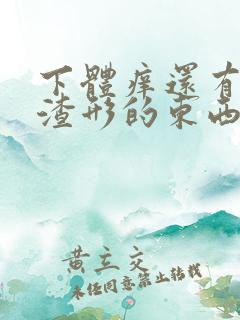 下體痒還有
渣形的東西
黄立交
未经同意禁止转载